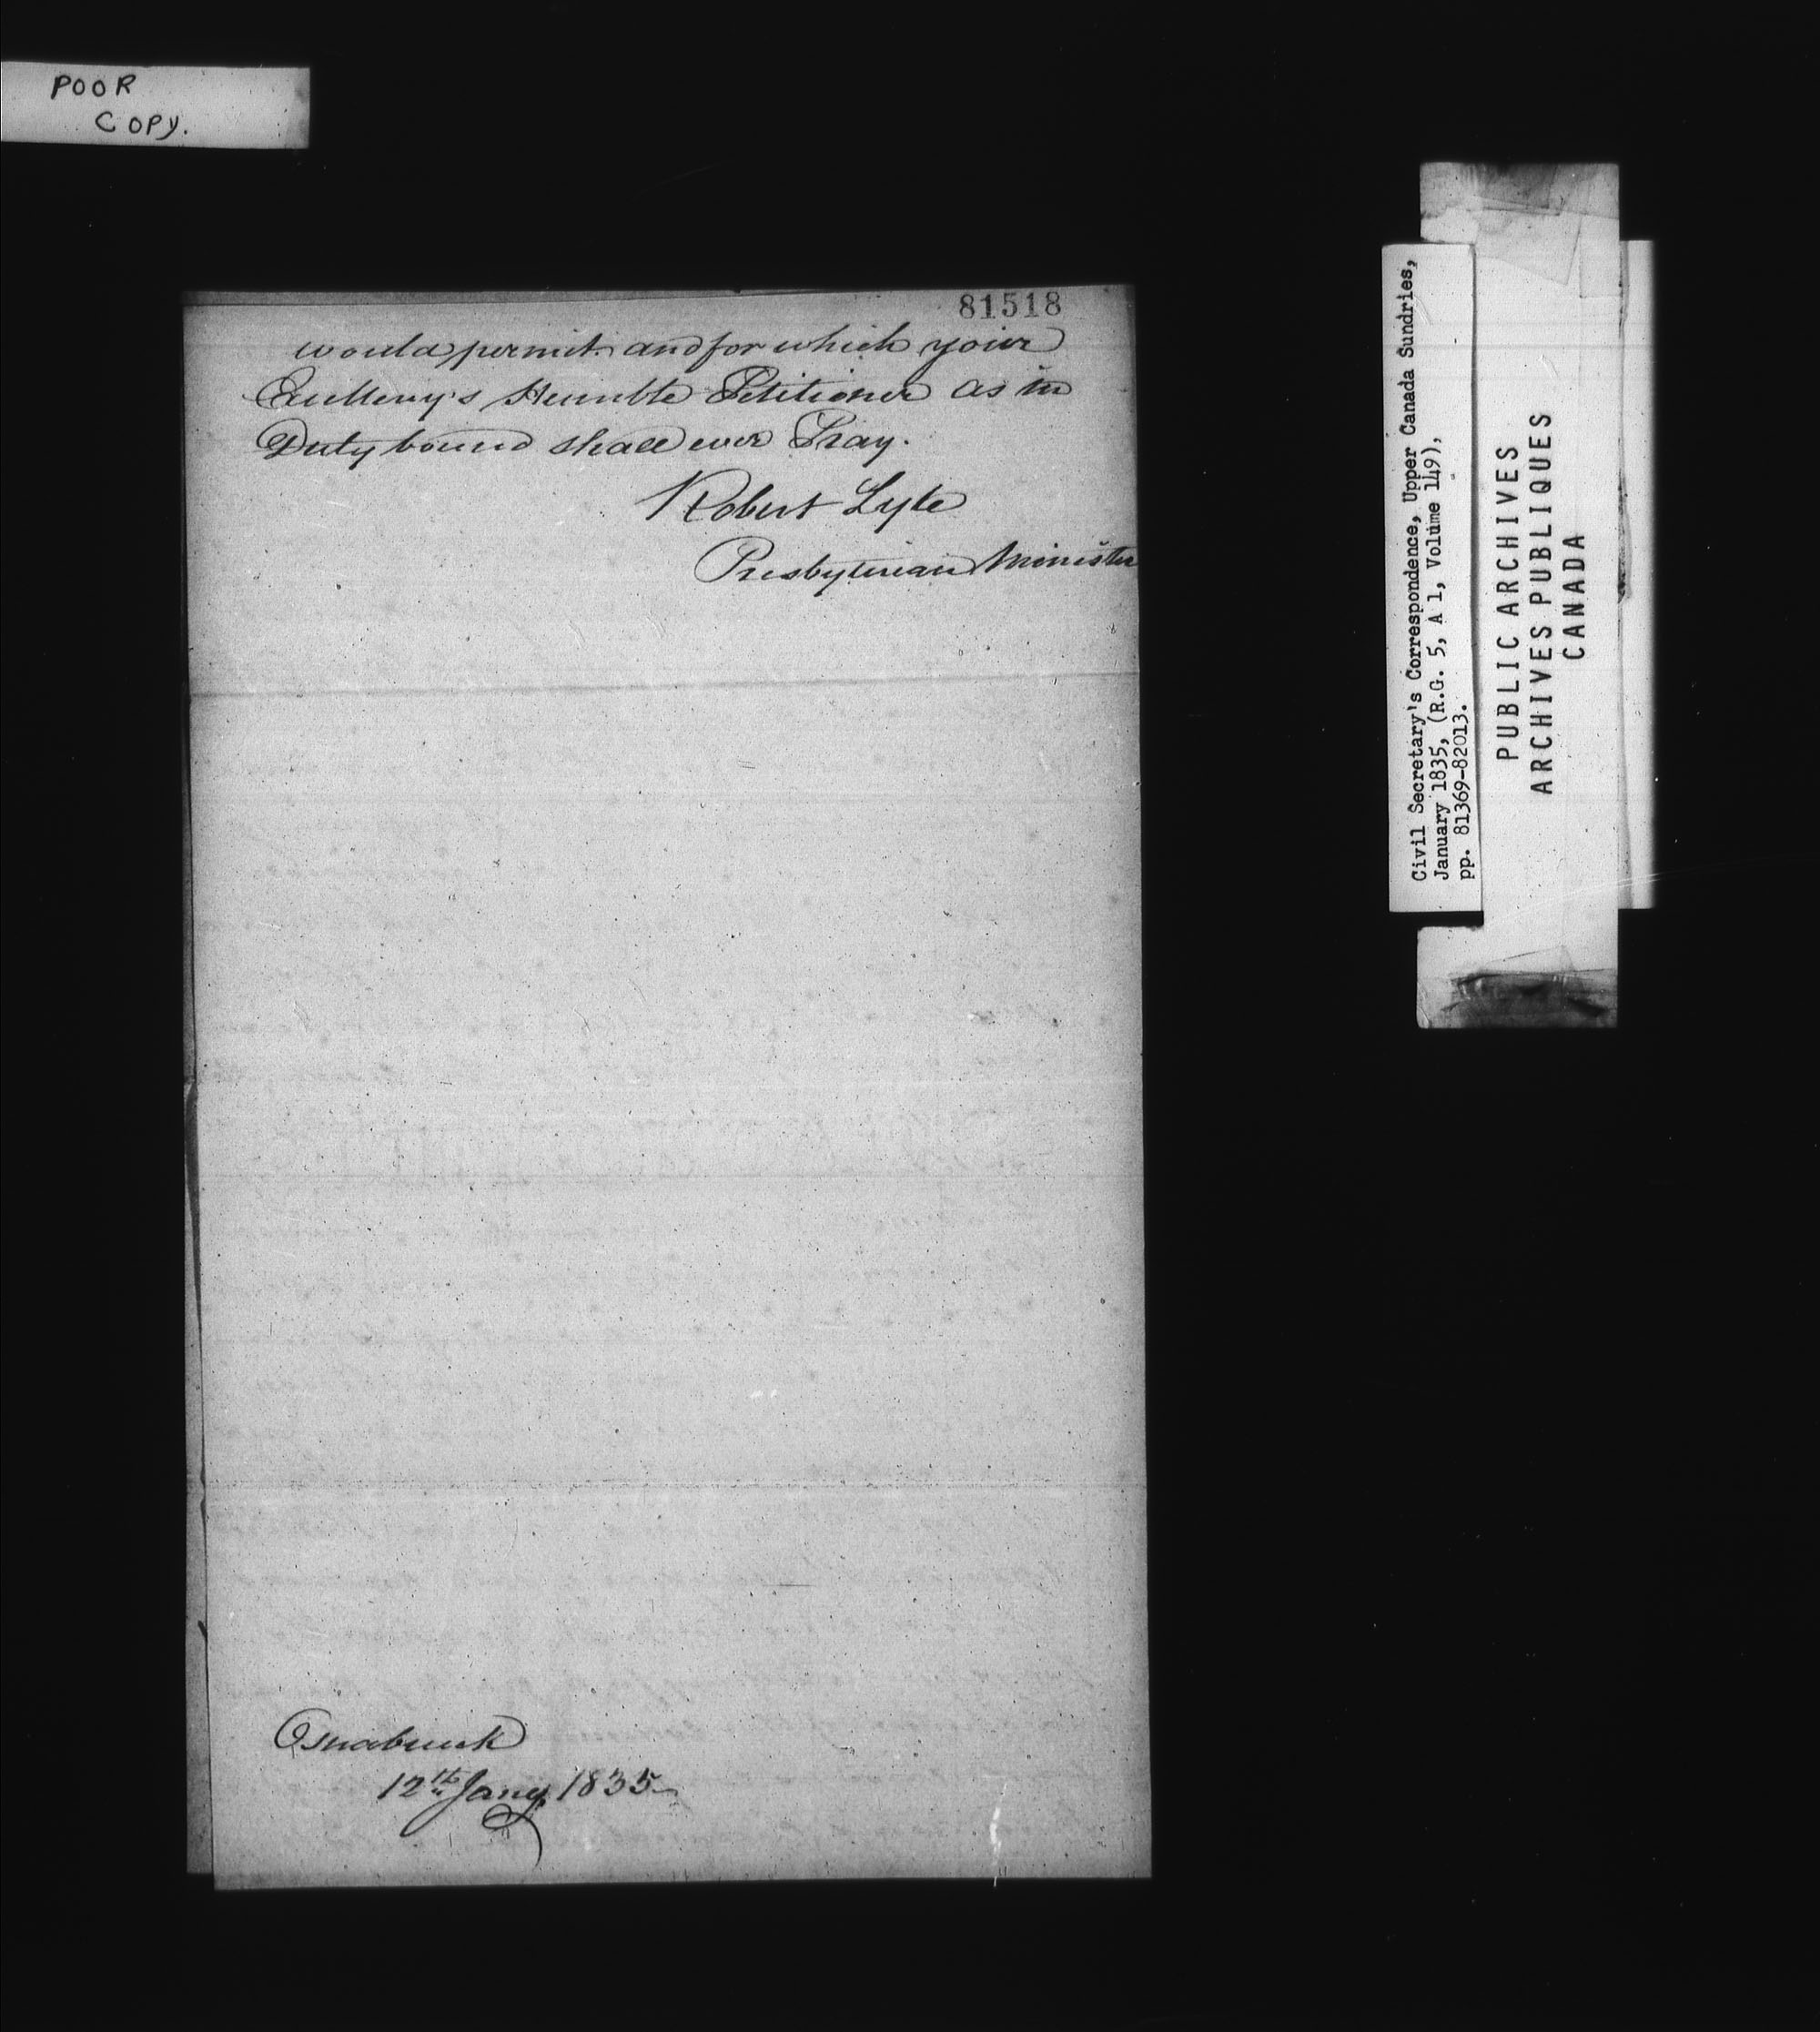 POOR
COPY.
81518
would permit and for which your
Excellency's Humble Petitioner as in
Duty bound shall ever Pray.
Robert Lyle
Presbyterian Minister
Osnabruck
12th Jany. 1835
Civil Secretary's Correspondence, Upper Canada Sundries,
January 1835, (R.G. 5, A 1, Volume 149),
pp. 81369-82013.
PUBLIC ARCHIVES
ARCHIVES PUBLIQUES
CANADA